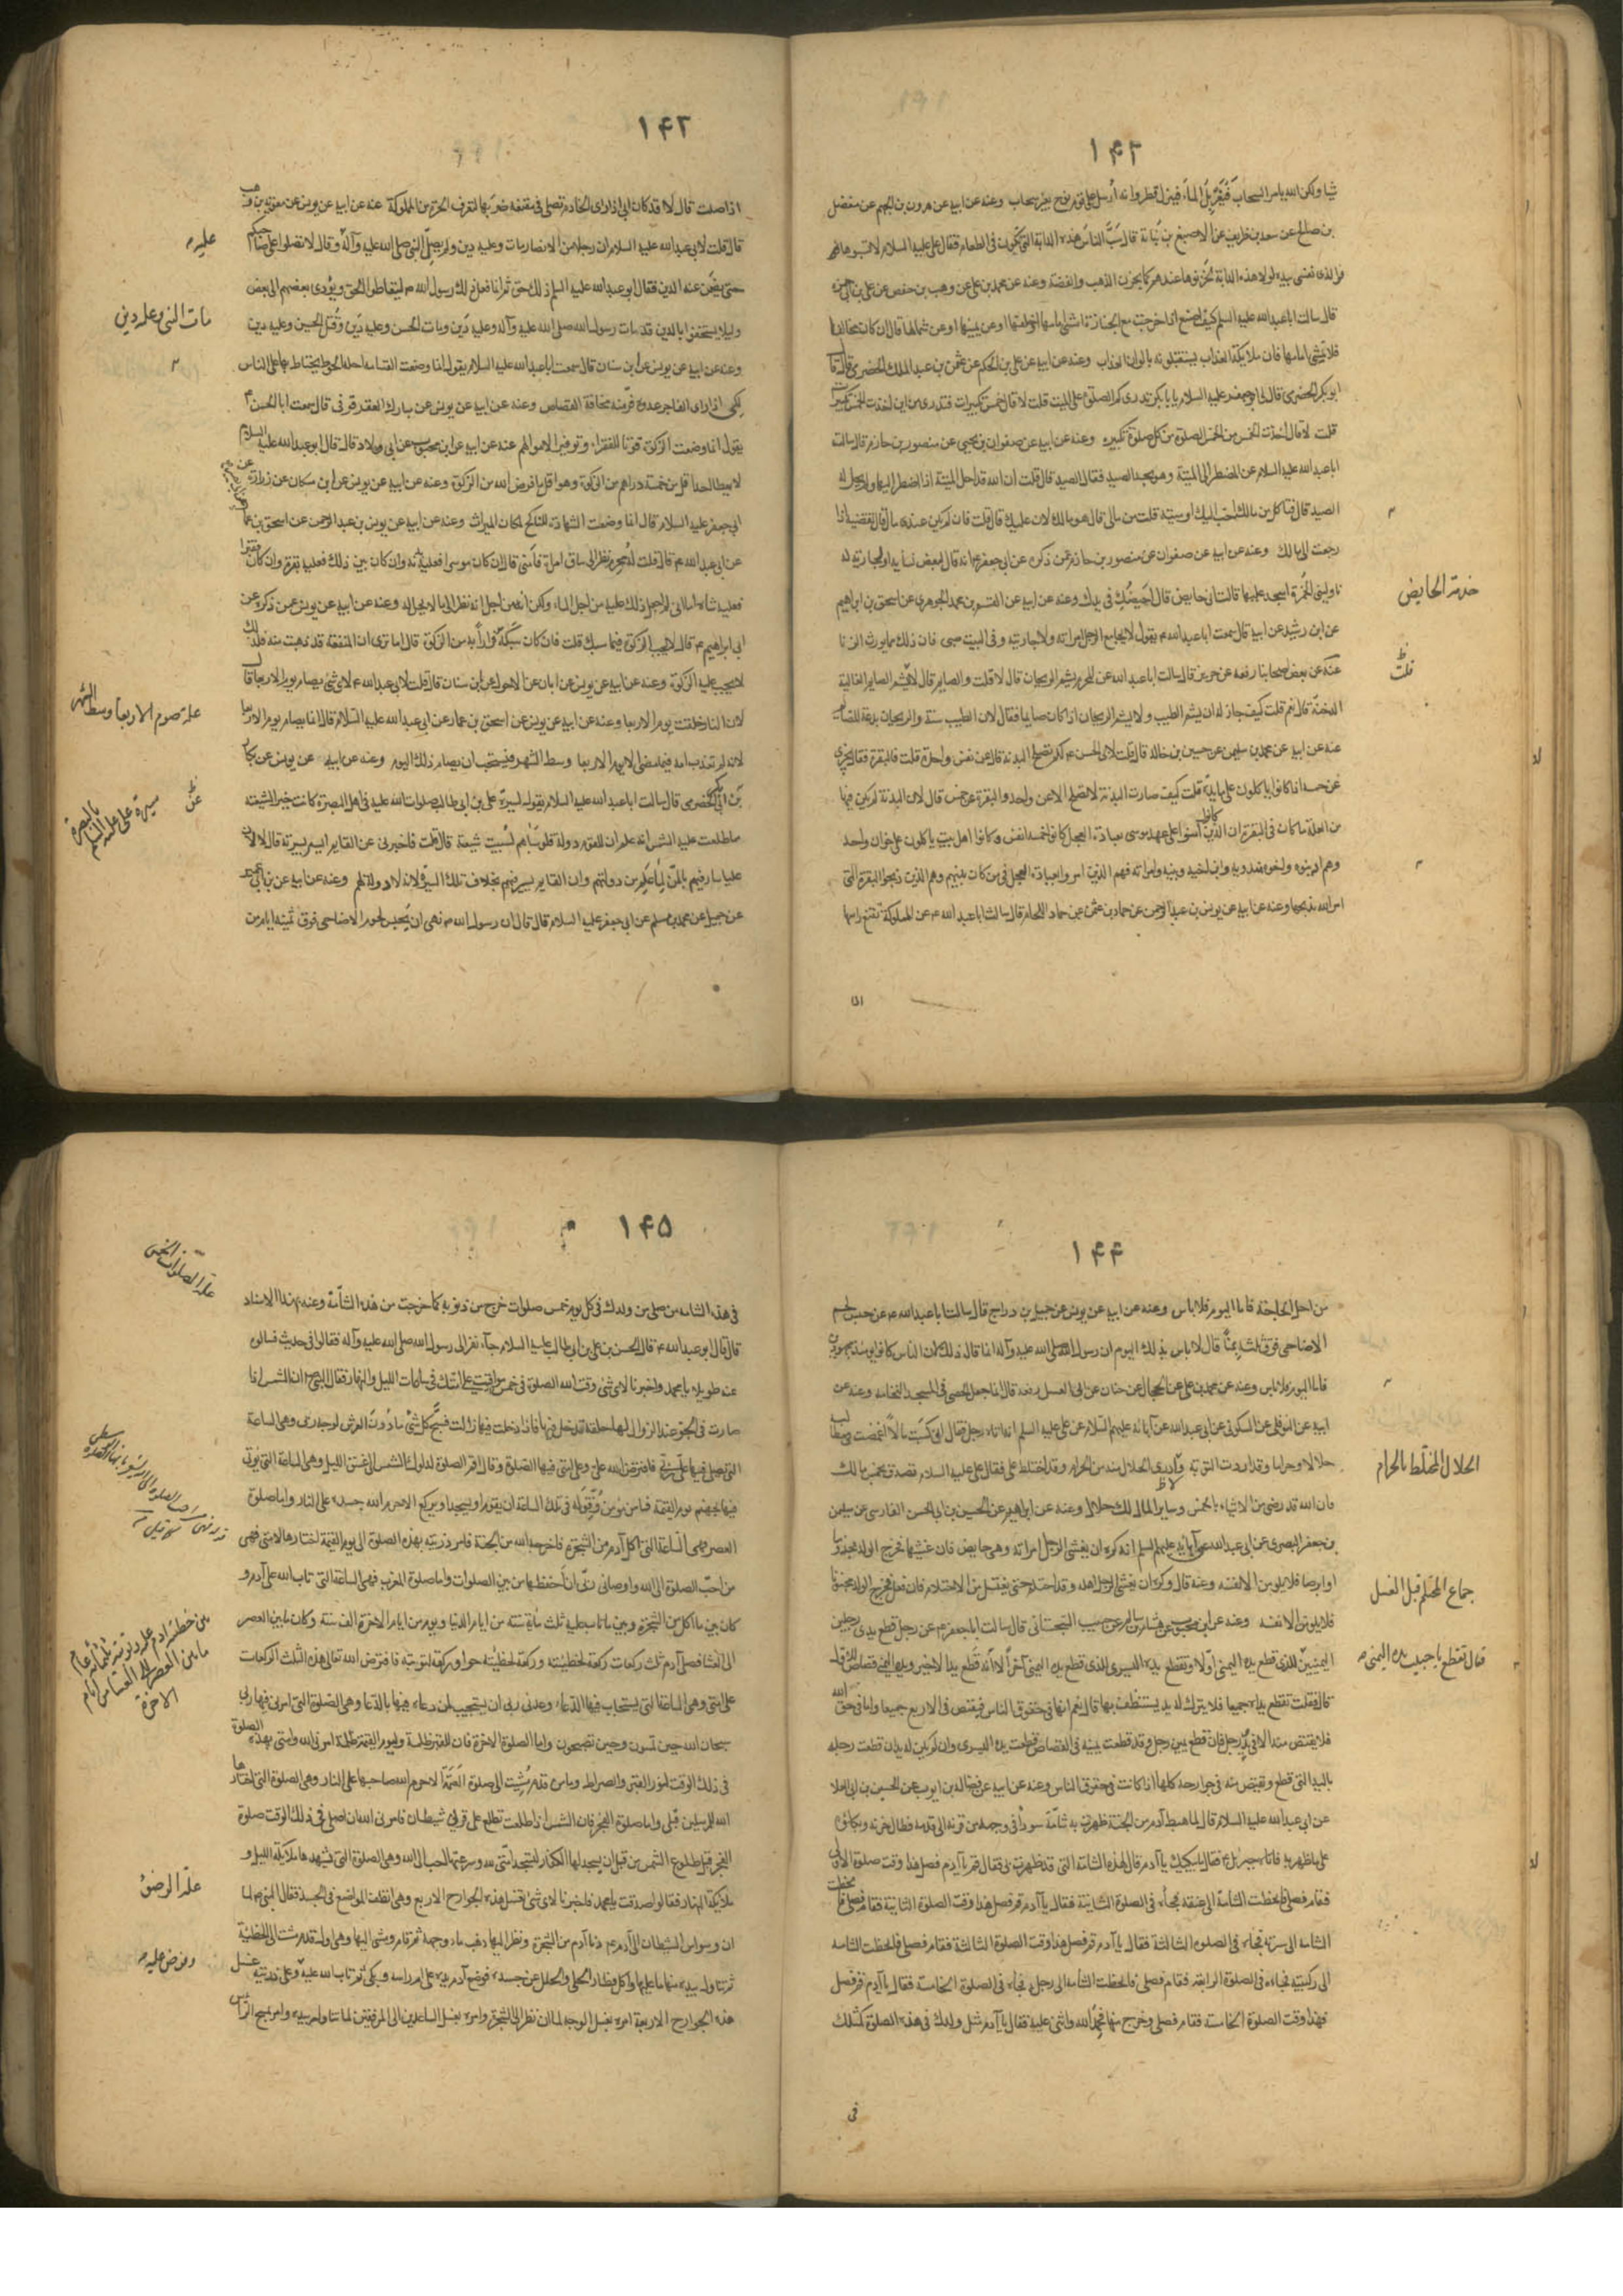 ۱۴۲
شيا ولكن الله يامر السحاب فيغربل الماء فينزل قطر وانه أرسل على قوم نوح بغير سحاب وعنه عن ابيه عن هرون بن الجهم عن مفضل
بن صالح عن سعد بن ظريف عن الاصبغ بن نباتة قال سب الناس هذه الدابة التي تكون في الطعام فقال علي عليه السلام لا تسبوها فو
الذي نفسي بيده لولا هذه الدابة لخزنوها عندهم كما يخزن الذهب والفضة وعنه عن محمد بن علي عن وهب بن حفص عن علي بن ابي حمزة
قال سالت ابا عبد الله عليه السلم كيف اصنع اذا خرجت مع الجنازة امشي امامها او خلفها او عن يمينها او عن شمالها قال ان كان مخالفا
فلا تمشي امامها فان ملائكة العذاب يستقبلونه بالوان العذاب وعنه عن ابيه عن علي بن الحكم عن عثمن بن عبد الملك الحضرمي
ابو بكر الحضرمي قال لي ابو جعفر عليه السلام يا با بكر تدري كم الصلوة على الميت قلت لا قال خمس تكبيرات فتدري من اين اخذت الخمس تكبيرات
قلت لا قال اخذت الخمس من الخمس الصلوة من كل صلوة تكبيرة وعنه عن ابيه عن صفوان بن يحيى عن منصور بن حازم قال سالت
ابا عبد الله عليه السلام عن المضطر الى الميتة وهو يجد الصيد فقال الصيد قال قلت ان الله قد احل الميتة اذا اضطر اليها ولم يحل له
الصيد قال تاكل من مالك احب اليك او ميتة قلت من مالي قال هو مالك لان عليك قال قلت فان لم يكن عندي مال قال تقضيه اذا
رجعت الى مالك وعنه عن ابيه عن صفوان عن منصور بن حازم عمن ذكره عن ابي جعفر انه قال لبعض نسائه او لجارية له
ناوليني الخمرة اسجد عليها قالت اني حايض قال أحيضك في يدك وعنه عن ابيه عن القسم بن محمد الجوهري عن اسحق بن ابراهيم
عن ابن رشيد عن ابيه قال سمعت ابا عبد الله ع يقول لا يجامع الرجل امراته ولا جاريته وفي البيت صبي فان ذلك مما يورث الزنا
عنه عن بعض اصحابنا رفعه عن حريز قال سالت ابا عبد الله عن المحرم يشم الريحان قال لا قلت والصايم قال لا يشم الصايم الغالية
الدخنة قال نعم قلت كيف جاز له ان يشم الطيب ولا يشم الريحان اذا كان صايما فقال لان الطيب سنة والريحان بدعة للصائم
عنه عن ابيه عن محمد بن سليمن عن حسين بن خالد قال قلت لابي الحسن ع كم تضحى البدنة قال عن نفس واحدة قلت فالبقرة فقال تجزي
عن خمسة اذا كانوا ياكلون على مايدة قلت كيف صارت البدنة لا تضحى الا عن واحد والبقرة عن خمس قال لان البدنة لم يكن فيها
من العلة ما كان في البقرة ان الذين أمروا على عهد موسى بعبادة العجل كانوا خمسة انفس وكانوا اهل بيت ياكلون على خوان واحد
وهم اذينوه واخوه مذويه وابن اخيه وبنيه وامراته فهم الذين امروا بعبادة العجل وهم الذين ذبحوا البقرة التي
امر الله بذبحها وعنه عن ابيه عن يونس بن عبد الرحمن عن حماد بن عثمن عن حماد اللحام قال سالت ابا عبد الله ع عن المملوكة تقنع راسها
اذا
خدمة الحايض
۱۴۳
اذا صلت قال لا قد كان ابي اذا راى الخادم تصلي في مقنعة ضربها لتعرف الحرة من المملوكة عنه عن ابيه عن يونس عن معوية بن وهب
قال قلت لابي عبد الله عليه السلام ان رجلا من الانصار مات وعليه دين ولم يصل النبي صلى الله عليه وآله وقال لا تصلوا على صاحبكم
حتى يضمن عنه الدين فقال ابو عبد الله عليه السلم ذلك حق ثم انما فعل ذلك رسول الله ص ليتعاطوا الحق ويؤدي بعضهم الى بعض
وليلا يستخفوا بالدين قد مات رسول الله صلى الله عليه وآله وعليه دين ومات الحسن وعليه دين وقتل الحسين وعليه دين
وعنه عن ابيه عن يونس عن ابن سنان قال سمعت ابا عبد الله عليه السلام يقول انما وضعت القسامة لعلة الحوط يحتاط بها على الناس
لكي اذا راى الفاجر عدوه فر منه مخافة القصاص وعنه عن ابيه عن يونس عن مبارك العقرقوفي قال سمعت ابا الحسن ع
يقول انما وضعت الزكوة قوتا للفقراء وتوفيرا لاموالهم عنه عن ابيه عن ابن محبوب عن ابي ولاد قال قال ابو عبد الله عليه السلام
لا يعطى احد اقل من خمسة دراهم من الزكوة وهو اقل ما فرض الله من الزكوة وعنه عن ابيه عن يونس عن ابن مسكان عن زرارة
ابي جعفر عليه السلام قال انما وضعت الشهادة للناكح لمكان الميراث وعنه عن ابيه عن يونس بن عبد الرحمن عن اسحق بن عمار
عن ابي عبد الله ع قال قلت له محرم نظر الى ساق امراة فامنى قال ان كان موسرا فعليه بدنة وان كان بين ذلك فعليه بقرة وان كان فقيرا
فعليه شاة اما اني لم اجعل ذلك عليه من اجل الماء ولكن انه من اجل انه نظر الى ما لا يحل له وعنه عن ابيه عن يونس عمن ذكره عن
ابي ابراهيم ع قال لا تجب الزكوة فيما سبك قلت فان كان سبكه فرارا به من الزكوة قال اما ترى ان المنفعة قد ذهبت منه فلذلك
لا تجب عليه الزكوة وعنه عن ابيه عن يونس عن ابان عن الاحول عن ابن سنان قال قلت لابي عبد الله ع لاي شئ يصام يوم الاربعا قال
لان النار خلقت يوم الاربعا وعنه عن ابيه عن يونس عن اسحق بن عمار عن ابي عبد الله عليه السلام قال انما يصام يوم الاربعا
لانه لم تعذب امة فيما مضى الا يوم الاربعا وسط الشهر فيستحب ان يصام ذلك اليوم وعنه عن ابيه عن يونس عن بكار
بن ابي بكر الحضرمي قال سالت ابا عبد الله عليه السلام يقول لسيرة علي بن ابي طالب صلوات الله عليه في اهل البصرة كانت خيرا لشيعته
مما طلعت عليه الشمس انه علم ان للقوم دولة فلو سباهم لسبيت شيعته قال قلت فاخبرني عن القايم ايسير بسيرته قال لا لان
عليا سار فيهم بالمن لما علم من دولتهم وان القايم يسير فيهم بخلاف تلك السيرة لانه لا دولة لهم وعنه عن ابيه عن بن ابي عمير
عن جميل عن محمد بن مسلم عن ابي جعفر عليه السلام قال قال ان رسول الله ص نهى ان يحبس لحوم الاضاحي فوق ثلثة ايام من
عليه
مات النبي وعليه دين
علة صوم الاربعا وسط الشهر
سيرة علي عليه السلم بالبصرة
۱۴۴
من اجل الحاجة فاما اليوم فلا باس وعنه عن ابيه عن يونس عن جميل بن دراج قال سالت ابا عبد الله ع عن حبس لحوم
الاضاحي فوق ثلثة بمنى قال لا باس بذلك اليوم ان رسول الله صلى الله عليه وآله انما قال ذلك لان الناس كانوا يومئذ مجهودين
فاما اليوم فلا باس وعنه عن محمد بن علي عن الحجال عن حنان عن ابي العسل رفعه قال انما جعل الحصى في المسجد للنخامة وعنه عن
ابيه عن النوفلي عن السكوني عن ابي عبد الله عن آبائه عليهم السلام عن علي عليه السلم انه اتاه رجل فقال اني كسبت مالا اغمضت في مطالبه
حلالا وحراما وقد اردت التوبة ولا ادري الحلال منه من الحرام وقد اختلط علي فقال علي عليه السلام تصدق بخمس مالك
فان الله قد رضي من الاشياء بالخمس وساير المال لك حلال وعنه عن ابراهيم عن الحسين بن ابي الحسن الفارسي عن سليمن
بن جعفر البصري عن ابي عبد الله عن آبائه عليهم السلم انه كره ان يغشى الرجل امراته وهي حايض فان غشيها فخرج الولد مجذوما
او ابرصا فلا يلومن الا نفسه وعنه قال وكره ان يغشى الرجل اهله وقد احتلم حتى يغتسل من الاحتلام فان فعل فخرج الولد مجنونا
فلا يلومن الا نفسه وعنه عن ابن محبوب عن هشام بن سالم عن حبيب السجستاني قال سالت ابا جعفر ع عن رجل قطع يدي رجلين
اليمينين للذي قطع يده اليمنى اولا وتقطع يده اليسرى للذي قطع يده اليمنى آخرا لانه قطع يد الاخير ويده اليمنى قصاص للاول
قال فقلت تقطع يداه جميعا فلا يترك له يد يستنظف بها قال نعم انها في حقوق الناس فيقتص في الاربع جميعا واما في حق الله
فلا يقتص منه الا في يد ورجل فان قطع يمين رجل وقد قطعت يمينه في القصاص قطعت يده اليسرى وان لم يكن له يدان قطعت رجله
باليد التي قطع ويقتص منه في جوارحه كلها اذا كانت في حقوق الناس وعنه عن ابيه عن فضالة بن ايوب عن الحسين بن ابي العلا
عن ابي عبد الله عليه السلام قال لما هبط آدم من الجنة ظهرت به شامة سوداء في وجهه من قرنه الى قدمه فطال حزنه وبكاؤه
على ما ظهر به فاتاه جبرئيل ع فقال ما يبكيك يا آدم قال لهذه الشامة التي قد ظهرت بي فقال قم يا آدم فصل هذا وقت صلوة الاولى
فقام فصلى فانحطت الشامة الى عنقه فجاءه في الصلوة الثانية فقال يا آدم قم فصل هذا وقت الصلوة الثانية فقام فصلى فانحطت
الشامة الى سرته فجاءه في الصلوة الثالثة فقال يا آدم قم فصل هذا وقت الصلوة الثالثة فقام فصلى فانحطت الشامة
الى ركبتيه فجاءه في الصلوة الرابعة فقام فصلى فانحطت الشامة الى رجليه فجاءه في الصلوة الخامسة فقال يا آدم قم فصل
فهذا وقت الصلوة الخامسة فقام فصلى وخرج منها فحمد الله واثنى عليه فقال يا آدم مثل ولدك في هذه الصلوة كمثلك
في
الحلال المختلط بالحرام
جماع المحتلم قبل الغسل
فقال تقطع يا حبيب يده اليمنى
۱۴۵
في هذه الشامة من صلى من ولدك في كل يوم خمس صلوات خرج من ذنوبه كما خرجت من هذه الشامة وعنه بهذا الاسناد
قال قال ابو عبد الله ع قال الحسن بن علي بن ابي طالب عليه السلام جاء نفر الى رسول الله صلى الله عليه وآله فقالوا في حديث سالوه
عنه طويل يا محمد واخبرنا لاي شئ وقت الله الصلوة في خمس مواقيت على امتك في ساعات الليل والنهار فقال النبي ص ان الشمس اذا
صارت في الجو عند الزوال لها حلقة تدخل فيها فاذا دخلت فيها زالت فسبح كل شئ ما دون العرش لوجه ربي وهي الساعة
التي يصلي فيها علي ربي فافترض الله علي وعلى امتي فيها الصلوة وقال اقم الصلوة لدلوك الشمس الى غسق الليل وهي الساعة التي يؤتى
فيها بجهنم يوم القيمة فما من مؤمن وفق له في تلك الساعة ان يقوم او يسجد او يركع الا حرم الله جسده على النار واما صلوة
العصر فهي الساعة التي اكل آدم من الشجرة فاخرجه الله من الجنة فامر ذريته بهذه الصلوة الى يوم القيمة اختارها لامتي فهي
من احب الصلوة الى الله واوصاني ربي ان أحفظها من بين الصلوات واما صلوة المغرب فهي الساعة التي تاب الله على آدم و
كان بين ما اكل من الشجرة وبين ما تاب عليه ثلث مأية سنة من ايام الدنيا ويوم من ايام الاخرة الف سنة وكان ما بين العصر
الى العشا فصلى آدم ثلث ركعات ركعة لخطيئته وركعة لخطيئة حوا وركعة لتوبته فافترض الله تعالى هذه الثلث الركعات
على امتي وهي الساعة التي يستجاب فيها الدعاء وعدني ربي ان يستجيب لمن دعاه فيها بالدعا وهي الصلوة التي امرني فيها ربي
سبحان الله حين تمسون وحين تصبحون واما الصلوة الاخرة فان للقبر ظلمة وليوم القيمة ظلمة امرني الله وامتي بهذه الصلوة
في ذلك الوقت لنور القبر والصراط وما من قدم مشت الى صلوة العتمة الا حرم الله صاحبها على النار وهي الصلوة التي اختارها
الله للمرسلين قبلي واما صلوة الفجر فان الشمس اذا طلعت تطلع على قرني شيطان فامرني الله ان اصلي في ذلك الوقت صلوة
الفجر قبل طلوع الشمس من قبل ان يسجد لها الكفار لتسجد امتي لله وسرعتها احب الى الله وهي الصلوة التي تشهدها ملائكة الليل و
ملائكة النهار فقالوا صدقت يا محمد فاخبرنا لاي شئ تغسل هذه الجوارح الاربع وهي انظف المواضع في الجسد فقال النبي ص لما
ان وسوس الشيطان الى آدم ع دنا آدم من الشجرة ونظر اليها ذهب ماء وجهه ثم قام ومشى اليها وهي اول قدم مشت الى الخطيئة
ثم تناوله بيده منها ما عليها واكل فطار الحلي والحلل عن جسده فوضع آدم يده على ام راسه وبكى ثم تاب الله عليه وعلى ذريته غسل
هذه الجوارح الاربعة امره بغسل الوجه لما ان نظر الى الشجرة وامره بغسل الساعدين الى المرفقين لما تناول بيده وامر بمسح الراس
علة الصلوات الخمس
علة الوضوء
وفرض عليه